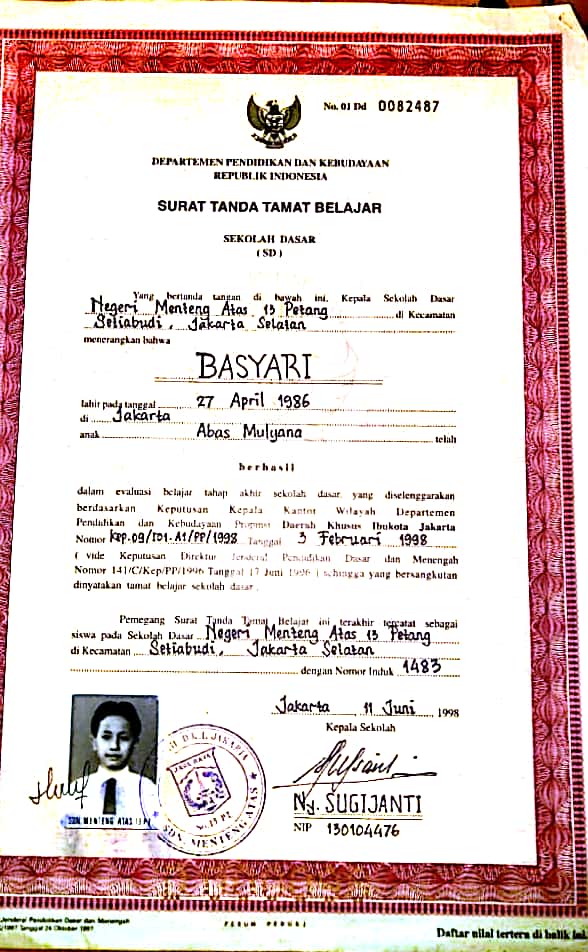 No. 01 Dd 0082487
DEPARTEMEN PENDIDIKAN DAN KEBUDAYAAN
REPUBLIK INDONESIA
SURAT TANDA TAMAT BELAJAR
SEKOLAH DASAR
( SD )
Yang bertanda tangan di bawah ini, Kepala Sekolah Dasar
Negeri Menteng Atas 13 Petang di Kecamatan
Setiabudi, Jakarta Selatan
menerangkan bahwa
BASYARI
lahir pada tanggal 27 April 1986
di Jakarta
anak Abas Mulyana telah
berhasil
dalam evaluasi belajar tahap akhir sekolah dasar yang diselenggarakan
berdasarkan Keputusan Kepala Kantor Wilayah Departemen
Pendidikan dan Kebudayaan Propinsi Daerah Khusus Ibukota Jakarta
Nomor Kep.09/101.A1/PP/1998 Tanggal 3 Februari 1998
( vide Keputusan Direktur Jenderal Pendidikan Dasar dan Menengah
Nomor 141/C/Kep/PP/1996 Tanggal 17 Juni 1996 ) sehingga yang bersangkutan
dinyatakan tamat belajar sekolah dasar.
Pemegang Surat Tanda Tamat Belajar ini terakhir tercatat sebagai
siswa pada Sekolah Dasar Negeri Menteng Atas 13 Petang
di Kecamatan Setiabudi, Jakarta Selatan
dengan Nomor Induk 1483
Jakarta 11 Juni 1998
Kepala Sekolah
Ny. SUGIJANTI
NIP 130104476
SDN. MENTENG ATAS 13 Pt
D.K.I. JAKARTA
JAYA RAYA
No. 13 Pt
SDN. MENTENG ATAS
Jenderal Pendidikan Dasar dan Menengah
1997 Tanggal 24 Oktober 1997
PERUM PERURI
Daftar nilai tertera di balik ini